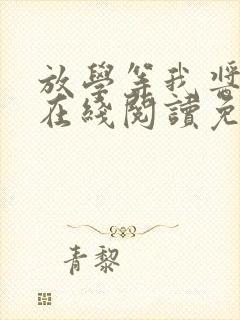 放學等我 將
在綫閱讀免
青黎